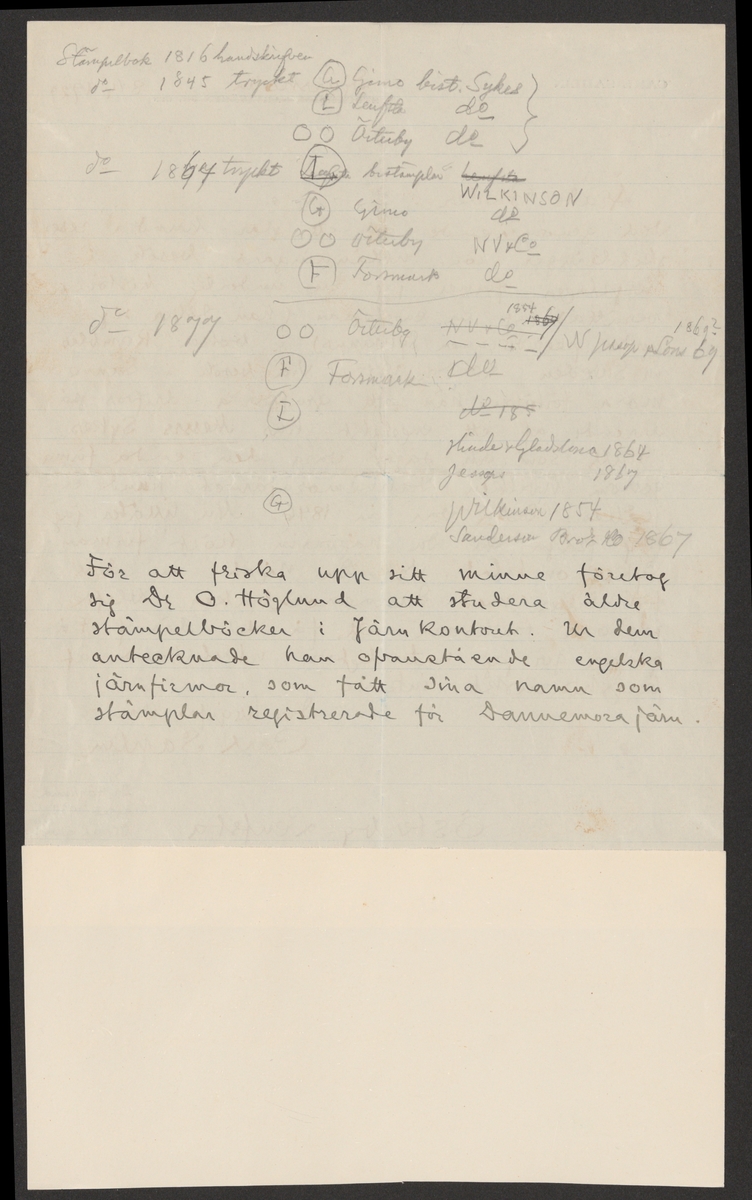 Stämpelbok 1816 handskrifven
do 1845 tryckt G Gimo bist. Sykes
L Leufsta do
OO Österby do
do 1864 tryckt L bistämplar Leufsta
WILKINSON
G Gimo do
OO Österby NV & Co
F Forsmark do
do 1877 OO Österby NV & Co 1854 1869 / W Jessop & Sons 69
F Forsmark do
L do 185
Hinde & Gladstone 1864
Jessops 1867
G Wilkinson 1854
Sanderson Brot & Co 1867
För att friska upp sitt minne företog
sig Dr O. Höglund att studera äldre
stämpelböcker i Järnkontoret. Ur dem
antecknade han ovanstående engelska
järnfirmor, som fått sina namn som
stämplar registrerade för Dannemorajärn.